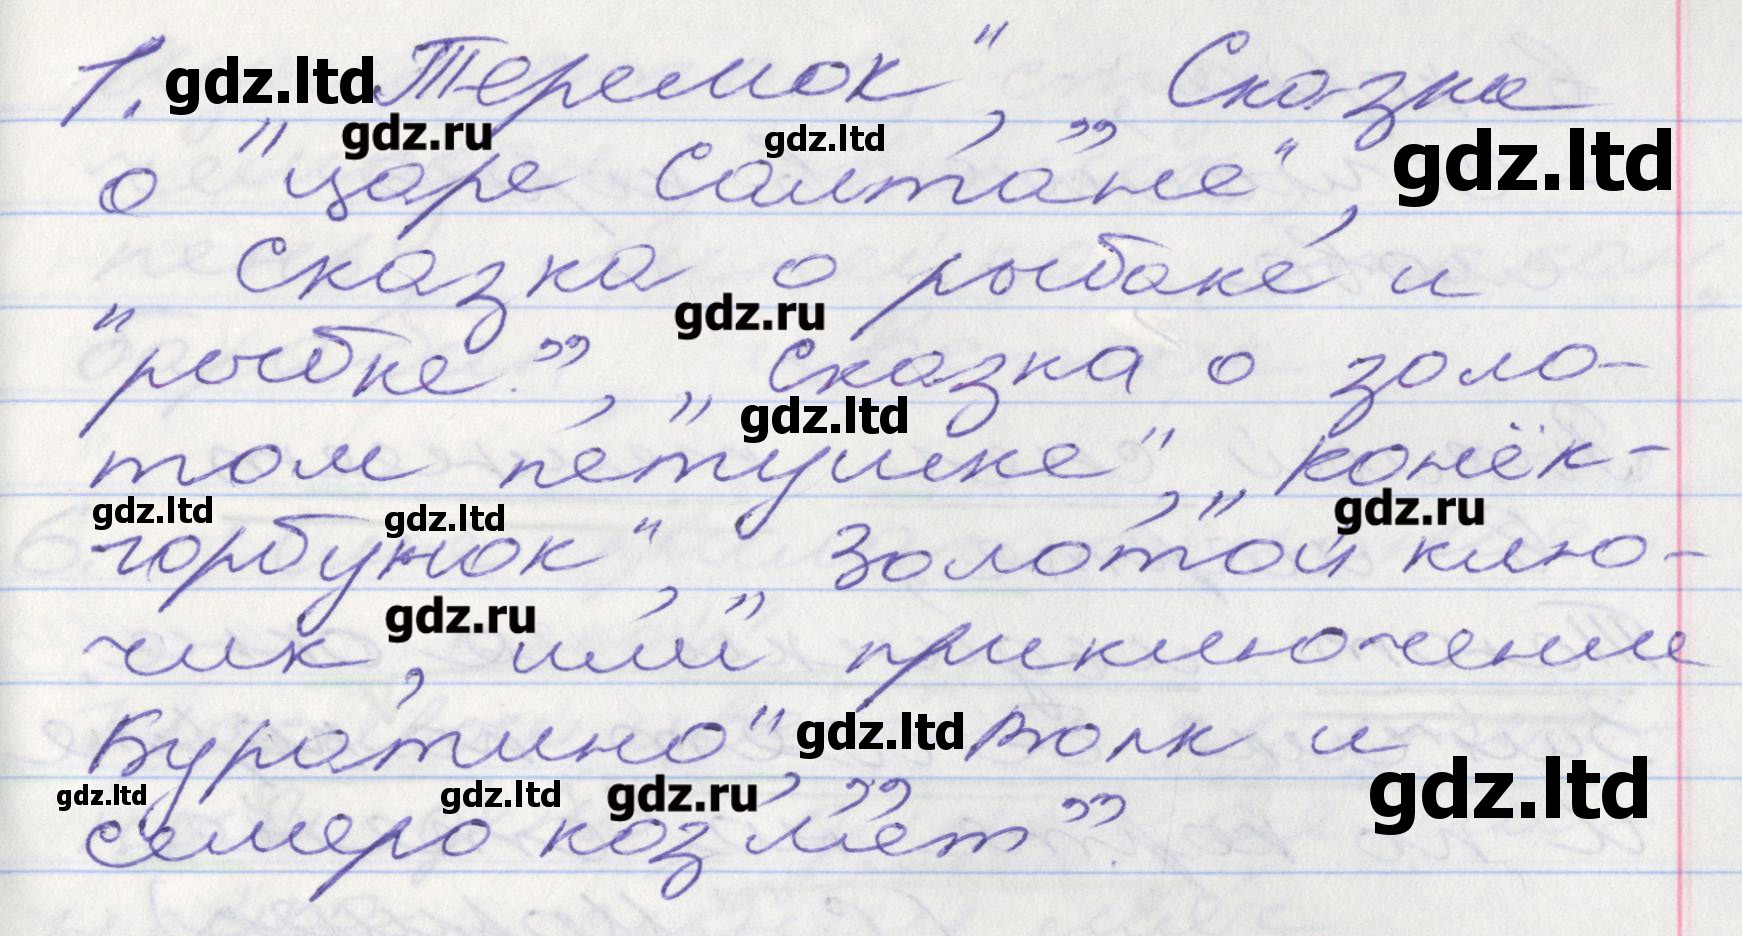 1. „Теремок", „Сказка
о царе Салтане",
„Сказка о рыбаке и
рыбке.", „Сказка о золо-
том петушке", „конёк-
горбунок", „Золотой клю-
чик, или приключении
Буратино", „Волк и
семеро козлят".
gdz.ltd
gdz.ru
gdz.ltd
gdz.ltd
gdz.ru
gdz.ltd
gdz.ltd
gdz.ltd
gdz.ru
gdz.ru
gdz.ltd
gdz.ltd
gdz.ltd
gdz.ltd
gdz.ru